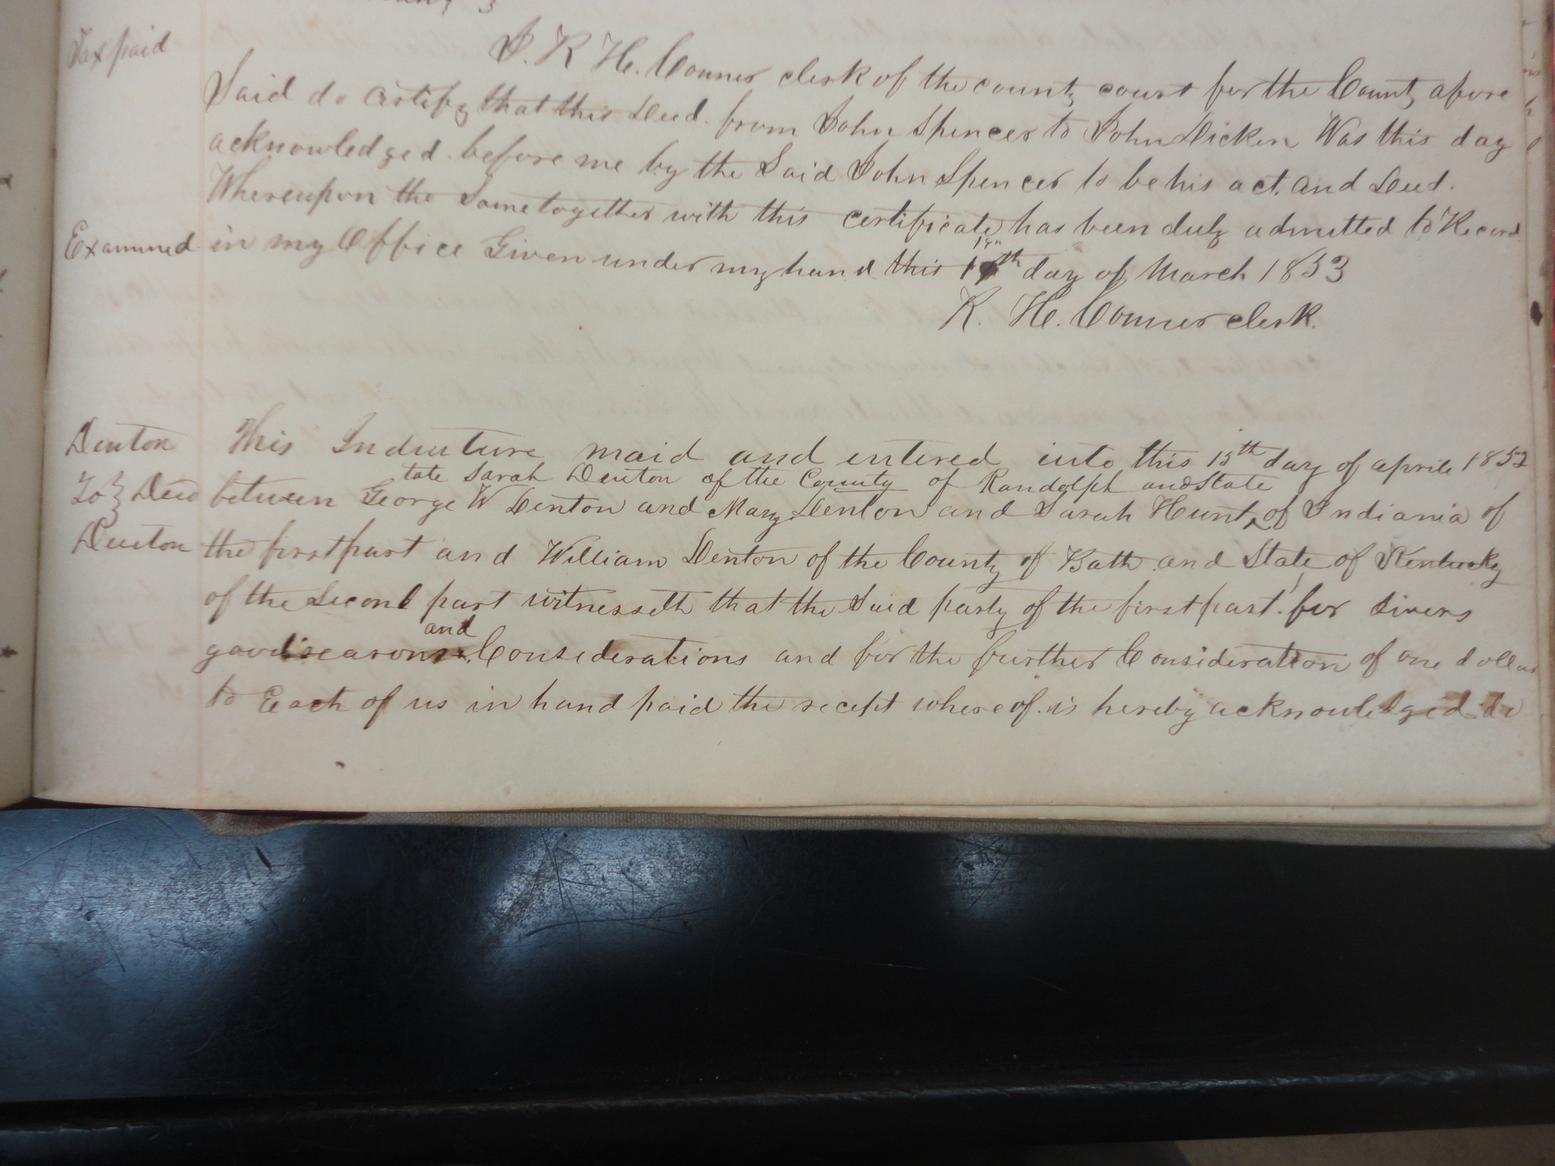 Tax paid
I. R. H. Conner clerk of the county court for the County afore
Said do certify that this Deed from John Spencer to John Dicken Was this day
acknowledged before me by the Said John Spencer to be his act and Deed.
Whereupon the Same together with this certificate has been duly admitted to Record
Examined in my Office Given under my hand this day of March 1853
R. H. Conner clerk.
Denton This Indenture maid and entered into this 15th day of aprile 1852
tate Sarah Denton of the County of Randolph and State
To } Deed between George W Denton and Mary Denton and Sarah Hunt of Indiania of
Denton the first part and William Denton of the County of Bath and State of Kentucky
of the Second part witnesseth that the Said party of the first part for divers
and
good reasons Considerations and for the further Consideration of one dollar
to Each of us in hand paid the recept where of is hereby acknowledged do